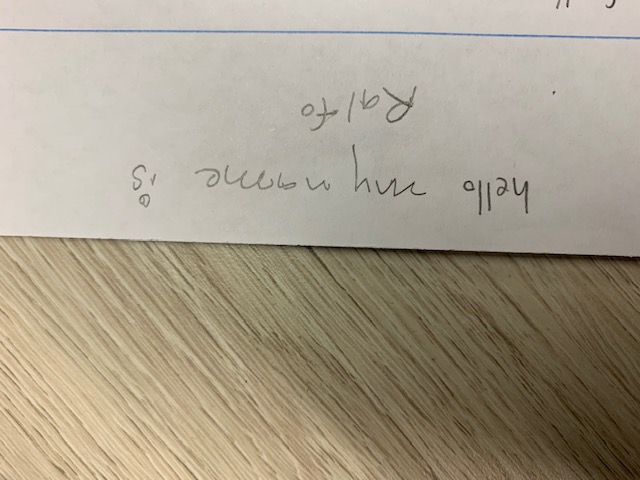 hello my name is
Ralfo